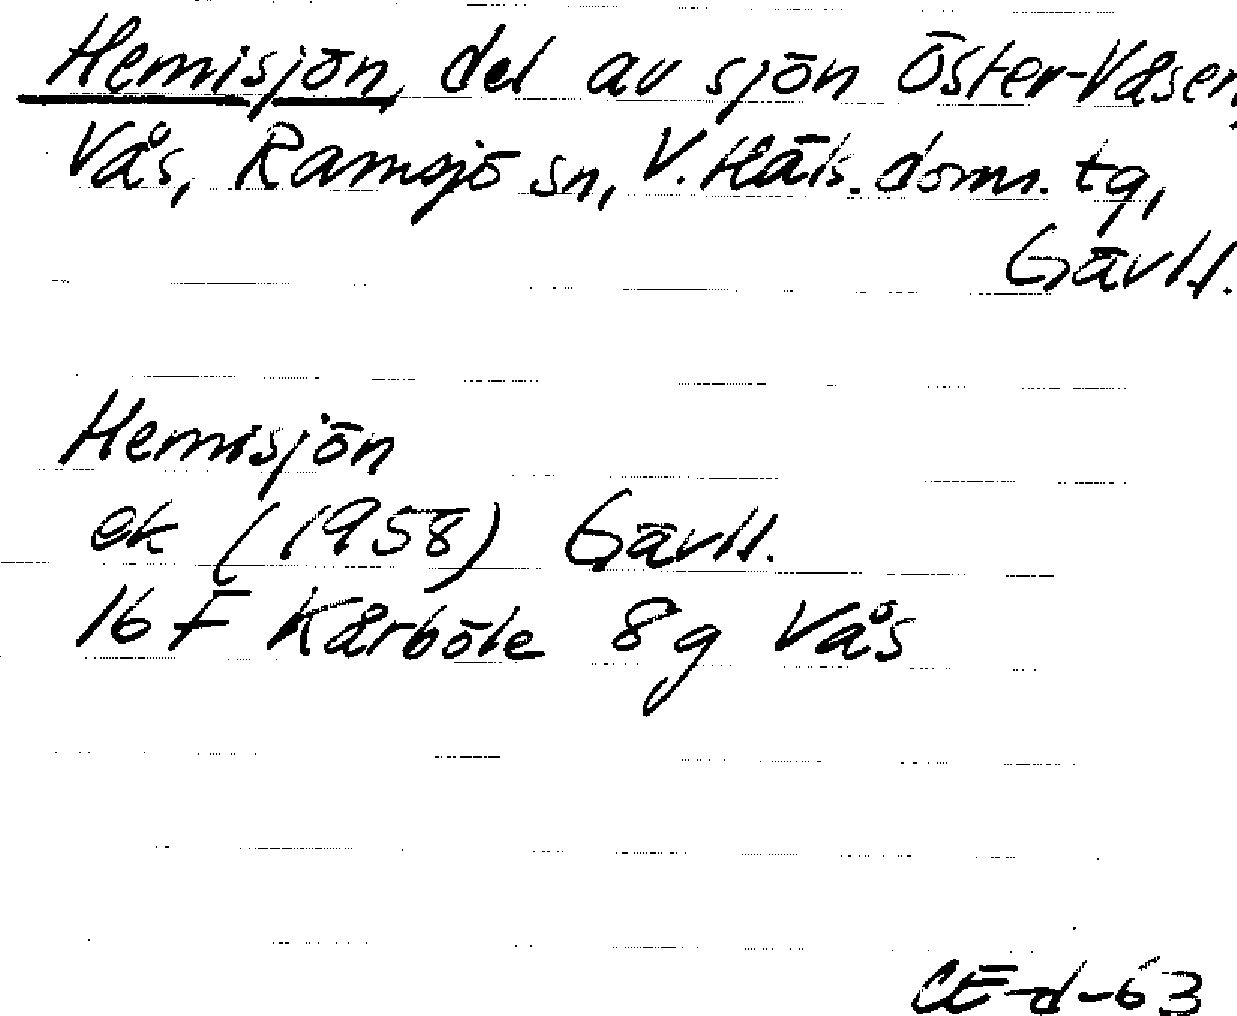 Hemisjön, del av sjön Öster-Våsen,
Vås, Ramsjö sn, V. Häls. doms. tg,
Gävl.l.
Hemisjön
ek (1958) Gävl.l.
16 F Kårböle 8g Vås
CE-d-63